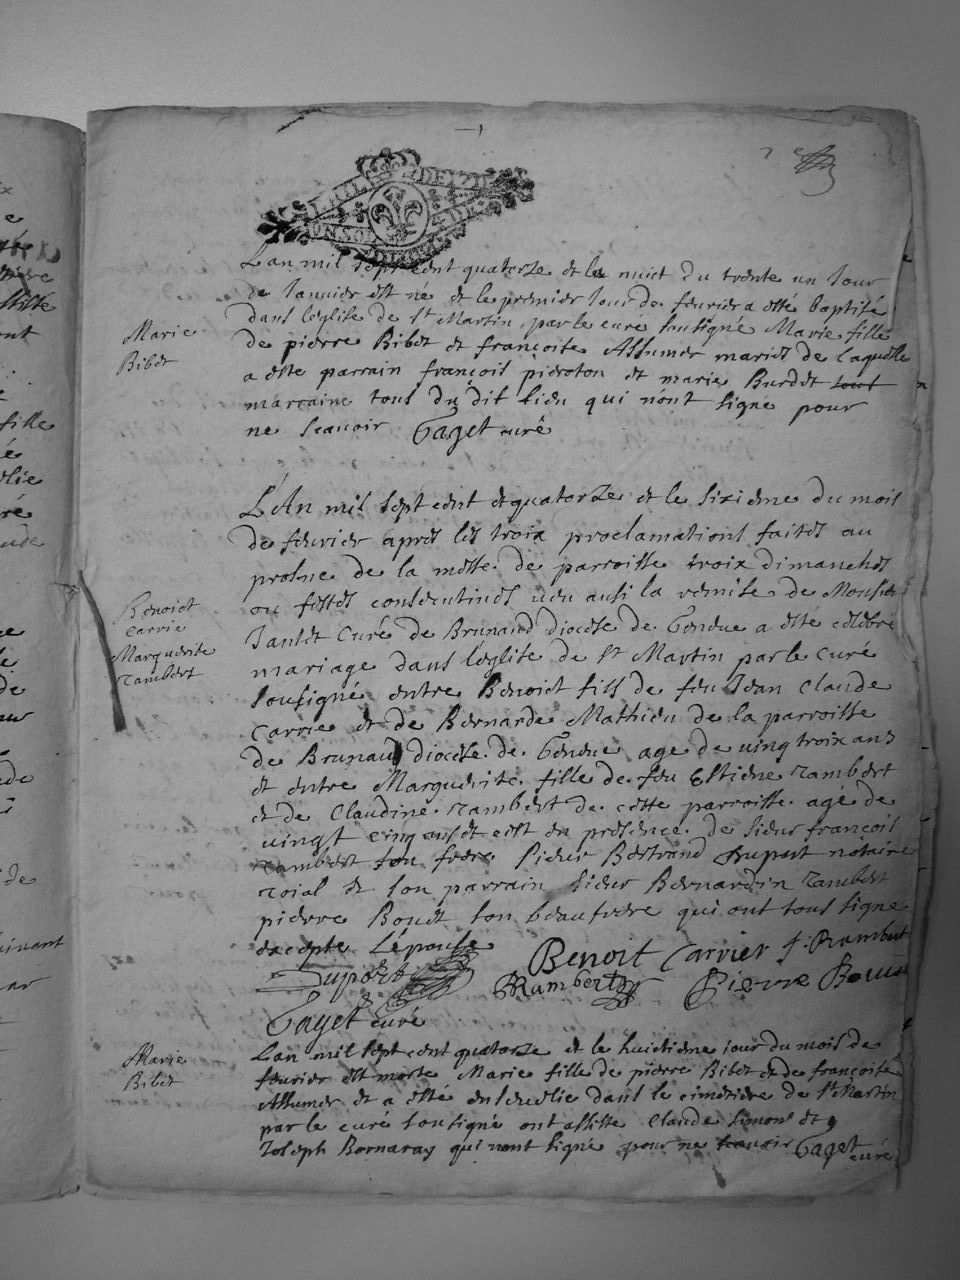 Marie
Bibet
Lan mil sept cent quatorze et la nuict du trente un Jour
de Janvier est né et le premier Jour de feuvrier a esté baptisée
dans l'eglise de St Martin par le curé sousigné Marie fille
de pierre Bibet et françoise Assumer mariés de laquelle
a este parrain françois pieroton et marie Burdet tout
marraine tous du dit lieu qui nont signe pour
ne scavoir Gazet curé
Benoict
Carrie
Marguerite
rambert
L'An mil sept cent et quatorze et le sixieme du mois
de feuvrier apres les troix proclamations faites au
prosne de la messe de parroisse troix dimanches
ou festes consecutives veu ausi la remise de Monsieur
Jantet Curé de Brunaud diocese de Geneve a esté celebré
mariage dans l'eglise de St Martin par le curé
sousigné entre Benoict fils de feu Jean Claude
Carrie et de Bernarde Mathieu de la parroisse
de Brunaud diocese de Geneve age de vingt troix ans
et entre Marguerite fille de feu Estiene rambert
et de Claudine rambert de cette parroisse agé de
vingt cinq ans et c'est en presence de sieur françois
rambert son frere sieur Bertrand Duport notaire
roial et son parrain sieur Bernardin rambert
pierre Bouet son beaufrere qui ont tous signe
excepte l'épouse
Benoit Carrier f. Rambert
Duport Rambert Pierre Bouet
Gazet curé
Marie
Bibet
Lan mil sept cent quatorze et le huictieme jour du mois de
feuvrier est morte Marie fille de pierre Bibet et de françoise
Assumer et a esté ensevelie dans le cimetiere de St Martin
par le curé sousigné ont assisté Claude simond et
Joseph Bornaray qui nont signé pour ne scavoir Gazet
curé